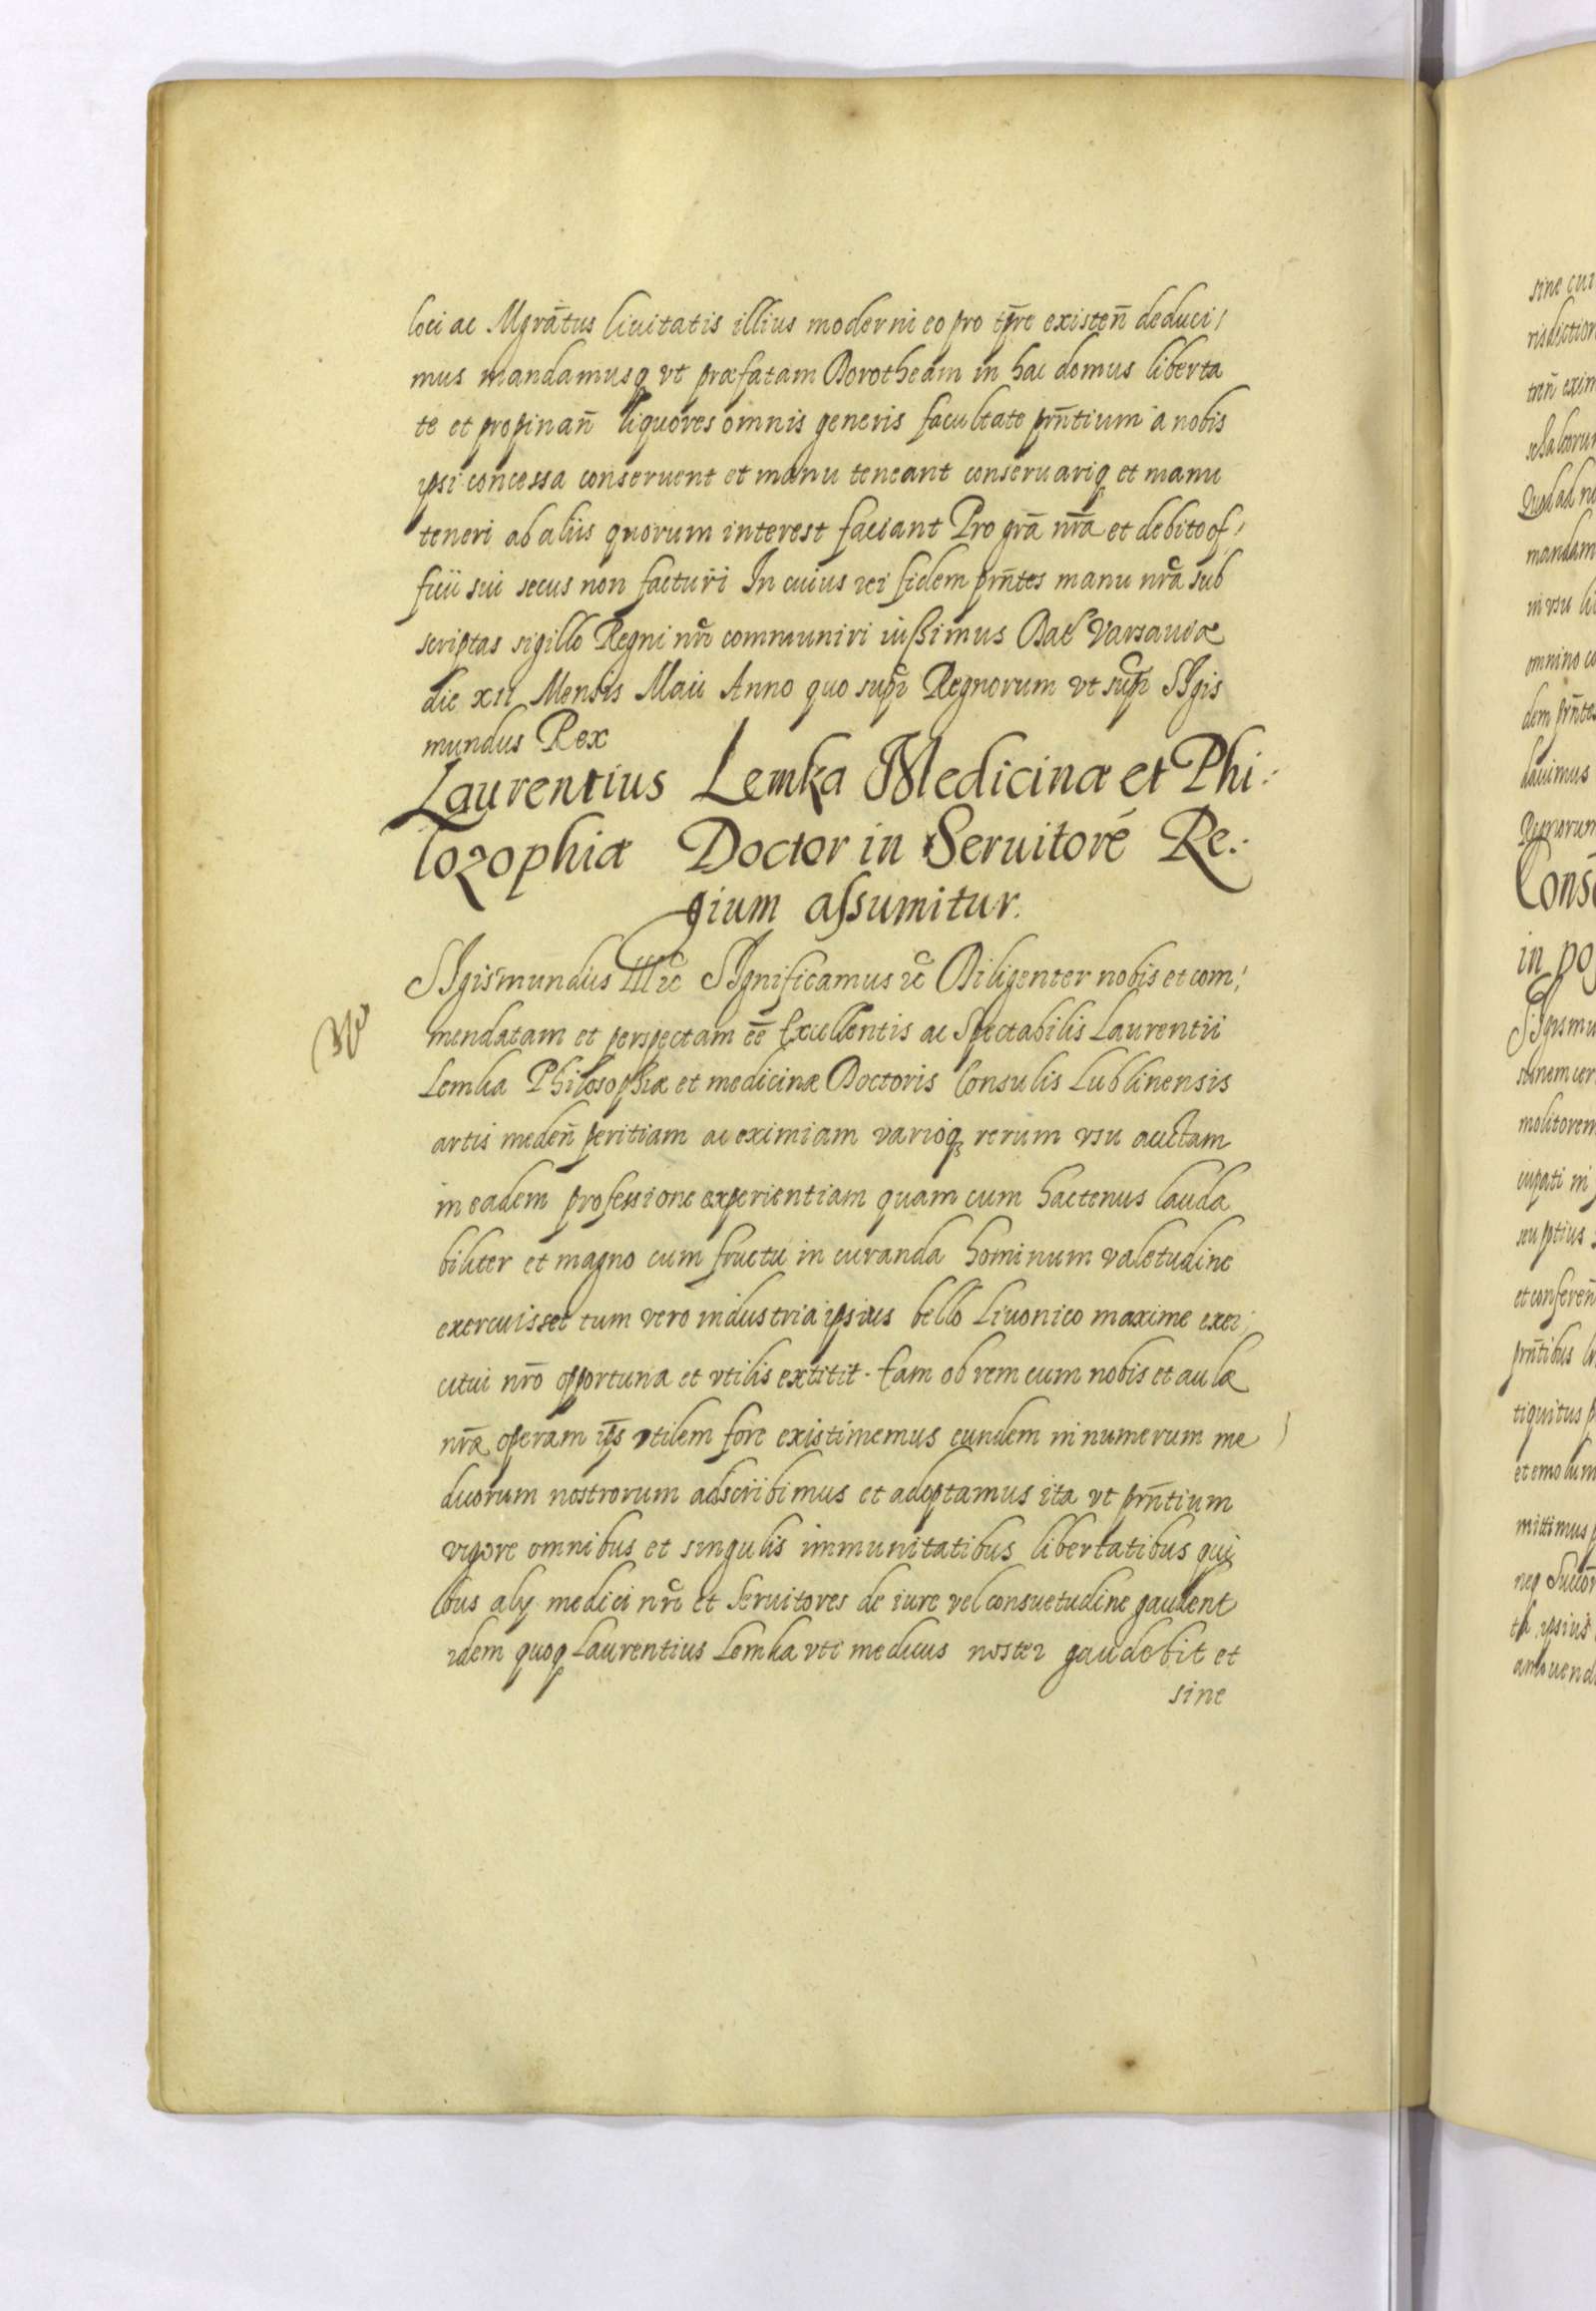 loci ac Mgrãtus Ciuitatis illius moderni eo pro tp̃re existeñ deduci/
mus mandamusq vt præfatam Dorotheam in hac domus liberta
te et propinañ liquores omnis generis facultate pr̃ntium a nobis
ipsi concessa conseruent et manu teneant conseruariq et manu
teneri ab aliis quorum interest faciant Pro grã nr̃a et debito of/
ficii sui secus non facturi In cuius rei fidem pr̃ntes manu nr̃a sub
scriptas sigillo Regni nr̃i communiri iussimus Dat Varsauiæ
die XII Mensis Maii Anno quo supr̃ Regnorum vt supr̃ SIgis
mundus Rex
Laurentius Lemka Medicinæ et Phi:
lozophiæ Doctor in Seruitorẽ Re:
gium assumitur.
SIgismundus III ec̃ SIgnificamus ec̃ Diligenter nobis et com/
mendatam et perspectam ẽe Excellentis ac Spectabilis Laurentii
Lemka Philosophiæ et medicinæ Doctoris Consulis Lublinensis
artis medeñ peritiam ac eximiam varioq rerum vsu auctam
in eadem professione experientiam quam cum hactenus lauda
biliter et magno cum fructu in curanda hominum valetudine
exercuisset tum vero industria ipsius bello Liuonico maxime exer/
citui nr̃o opportuna et vtilis extitit. Eam ob rem cum nobis et aulæ
nr̃æ operam ip̃s vtilem fore existimemus eundem in numerum me
dicorum nostrorum adscribimus et adoptamus ita vt pr̃ntium
vigore omnibus et singulis immunitatibus libertatibus qui
bus alij medici nr̃i et Seruitores de iure vel consuetudine gaudent
idem quoq Laurentius Lemka vti medicus noster gaudebit et
sine